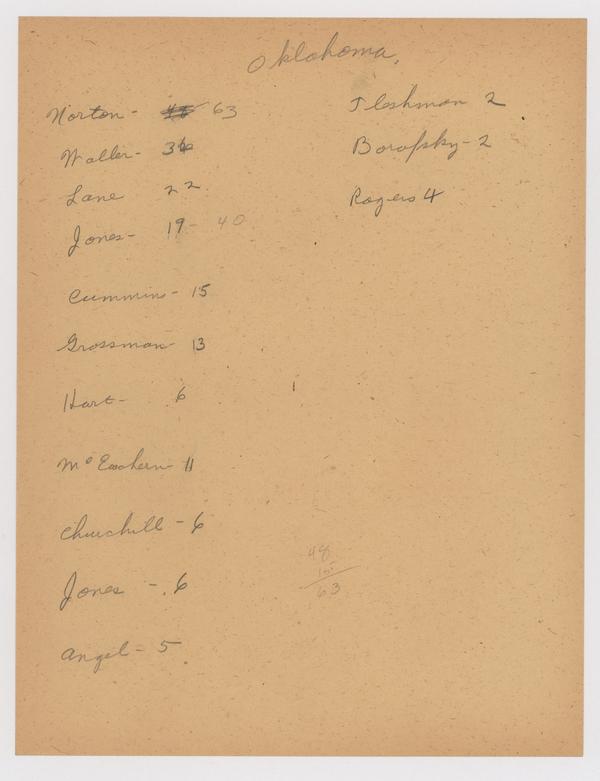 Oklahoma.
Norton - 48 63
Waller - 36
Lane 22.
Jones - 19 - 40
Cummins - 15
Grossman - 13
Hart - 6
McEachern - 11
Churchill - 6
Jones - 6
Angel - 5
Fleshman 2
Borofsky - 2
Rogers 4
48
15
63